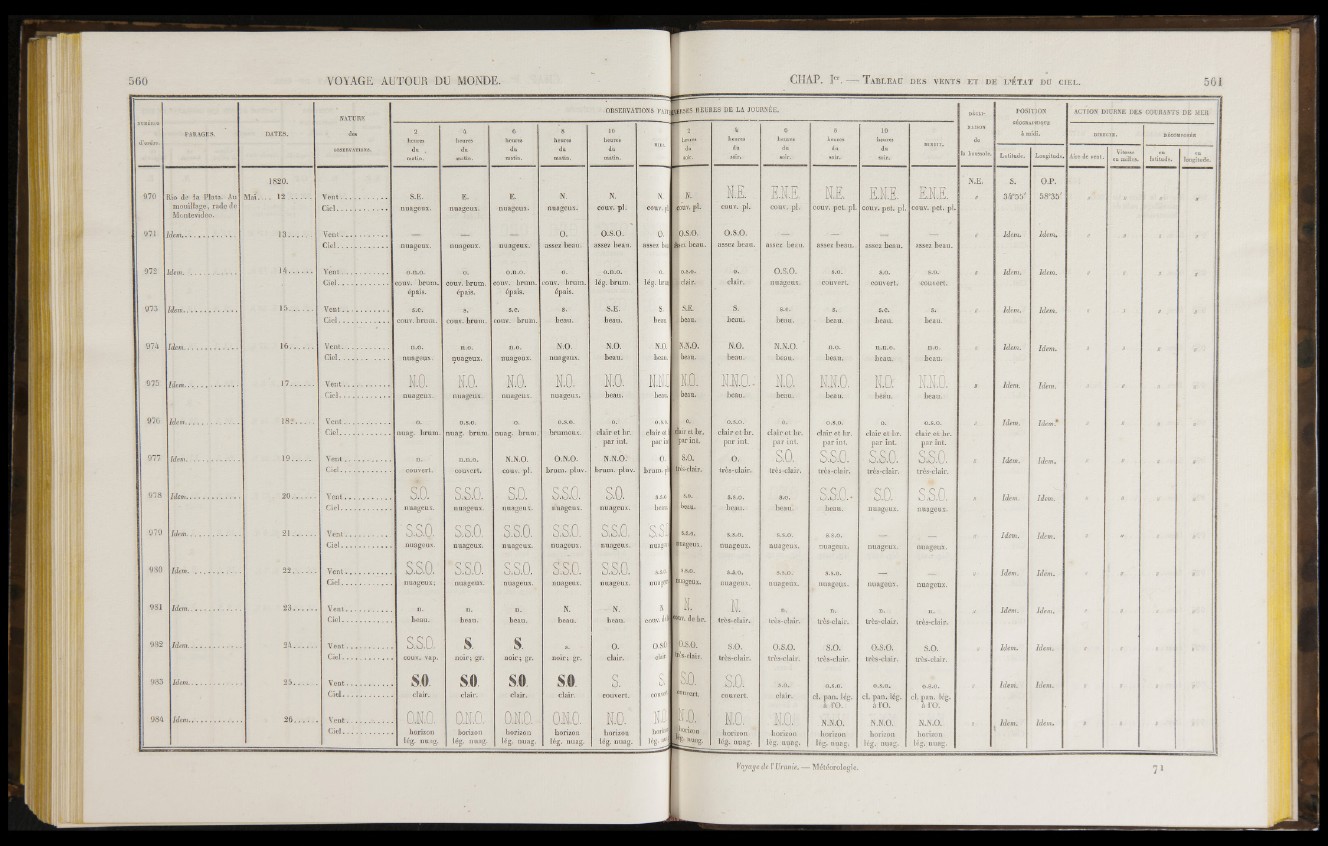 560 VOYAGE AUTOUR DU MONDE.
CHAP. Ier. — TABLEAU DES VENTS ET DE L'ÉTAT DU CIEL. 561
d'ordre. PARAGES. DATES. NATURE des OBSERVATIONS.
OBSERVATIONS HEURES DE LA JOURNÉE.
2 heures du matin. 4 heures du matin. 6 heures du matin. 8 heures du matin. 10 heures du matin. 2 heures du soir. 4 heures du soir. 6 heures du soir. 8 heures du soir. 10 heures du soir. MINUIT.
de la boussole. POSITION GÉOGRAPHIQUE à midi. Latitude. Longitude.
ACTION DIURNE DES COURANTS DE MER
DIRECTE. Aire de vent. Vitesse en milles. DÉCOMPOSÉE en latitude. en longitude.
1820. N.E. S. O.P.
970 Rio de la Plata. Au mouillage, rade de Montevideo. Mai.... 12 Vent S.E. E. E. N. N. N. N. N.E. E.N.E. N.E. E.N.E. E.N.E. 34°55' 58°35'
Ciel nuageux. nuageux. nuageux. nuageux. couv. pl. couv. pl. couv. pl. couv. pl. couv. pl. couv. pet. pl. couv. pet. pl. couv. pet. pl.
971 Idem. 13 Vent — — — O. O.S.O. O. O.S.O. O.S.O. — — — — Idem. Idem.
Ciel nuageux. nuageux. nuageux. assez beau. assez beau. assez beau. assez beau. assez beau. assez beau. assez beau. assez beau.
972 Idem. 14 Vent o.n.o. o. o.n.o. o. o.n.o. o. o.s.o. o. O.S.O. s.o. s.o. s.o. Idem. Idem.
Ciel couv. brum. épais. couv. brum. épais. couv. brum. épais. couv. brum. épais. lég. brum. lég. clair. clair. nuageux. couvert. couvert. couvert.
973 Idem. 15 Vent s.e. s. s.e. s. S.E. S. S.E. S. s.e. s. s.e. s. Idem. Idem.
Ciel couv. brum. couv. brum. couv. brum. beau. beau. beau. beau. beau. beau. beau. beau. beau.
974 Idem. 16 Vent n.o. n.o. n.o. N.O. N.O. N.O. N.N.O. N.O. N.N.O. n.o. n.n.o. n.o. Idem. Idem.
Ciel nuageux. nuageux. nuageux. nuageux. beau. beau. beau. beau. beau. beau. beau. beau.
975 Idem. 17 Vent N.O. N.O. N.O. N.O. N.O. N.O. N.N.O. N.O. N.N.O. N.O. N.N.O. Idem. Idem.
Ciel nuageux. nuageux. nuageux. nuageux. beau. beau. beau. beau. beau. beau. beau. beau.
976 Idem. 18 Vent o. o.s.o. o. o.s.o. o. o. o.s.o. o. o.s.o. o. o.s.o. Idem. Idem.
Ciel nuag. brum. nuag. brum. nuag. brum. brumeux. clair et br. par int. clair et br. par int. clair et br. par int. clair et br. par int. clair et br. par int. clair et br. par int. clair et br. par int.
977 Idem. 19 Vent n. n.n.o. N.N.O. O.N.O. N.N.O. O. S.O. O. S.O. S.S.O. S.S.O. S.S.O. Idem. Idem.
Ciel couvert. couvert. couv. pl. brum. pluv. brum. pluv. très-clair. très-clair. très-clair. très-clair. très-clair. très-clair.
978 Idem. 20 Vent S.O. S.S.O. S.O. S.S.O. S.O. s.o. s.s.o. s.o. S.S.O. S.O. S.S.O. Idem. Idem.
Ciel nuageux. nuageux. nuageux. nuageux. nuageux. beau. beau. beau. beau. nuageux. nuageux.
979 Idem. 21 Vent S.S.O. S.S.O. S.S.O. S.S.O. S.S.O. s.s.o. s.s.o. s.s.o. s.s.o. — — Idem. Idem.
Ciel nuageux. nuageux. nuageux. nuageux. nuageux. nuageux. nuageux. nuageux. nuageux. nuageux. nuageux.
980 Idem. 22 Vent S.S.O. S.S.O. S.S.O. S.S.O. S.S.O. s.s.o. s.s.o. s.s.o. s.s.o. — — Idem. Idem.
Ciel nuageux; nuageux. nuageux. nuageux. nuageux. nuageux. nuageux. nuageux. nuageux. nuageux. nuageux.
981 Idem. 23 Vent n. n. n. N. N. N. N. N. n. n. n. n. Idem. Idem.
Ciel beau. beau. beau. beau. beau. couv. de br. très-clair. très-clair. très-clair. très-clair. très-clair.
982 Idem. 24 Vent S.S.O. S. S. s. O. O.S.O. S.O. O.S.O. S.O. O.S.O. S.O. Idem. Idem.
Ciel couv. vap. noir; gr. noir; gr. noir; gr. clair. clair. très-clair. très-clair. très-clair. très-clair. très-clair. très-clair.
983 Idem. 25 Vent S.O. S.O. S.O. S.O. S. S. S.O. S.O. s.o. o.s.o. o.s.o. o.s.o. Idem. Idem.
Ciel clair. clair. clair. clair. couvert. couvert. couvert. clair. cl. pan. lég. à l'O. cl. pan. lég. à l'O. cl. pan. lég. à l'O.
984 Idem. 26 Vent O.N.O. O.N.O. O.N.O. O.N.O. N.O. N.O. N.O. N.O. N.N.O. N.N.O. N.N.O. Idem. Idem.
Ciel horizon lég. nuag. horizon lég. nuag. horizon lég. nuag. horizon lég. nuag. horizon lég. nuag. horizon lég. nuag. horizon lég. nuag. horizon lég. nuag. horizon lég. nuag. horizon lég. nuag. horizon lég. nuag.
Voyage de l'Uranie. — Météorologie. 71